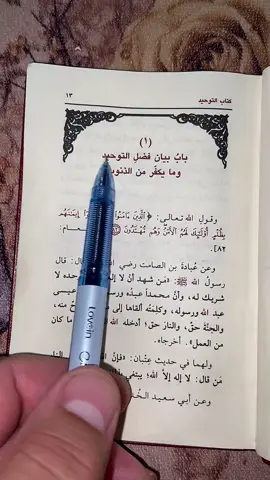 كتاب التوحيد
١٣
(١)
بابُ بيان فضلِ التوحيد
وما يكفّر من الذنوب
وقولِ الله تعالى: ﴿ٱلَّذِينَ ءَامَنُوا۟ إِيمَٰنَهُم
بِظُلْمٍ أُو۟لَٰٓئِكَ لَهُمُ ٱلْأَمْنُ وَهُم مُّهْتَدُونَ
٨٢].
وعن عُبادةَ بنِ الصامت رضي قال: قال
رسولُ الله ﷺ: «مَن شهد أنْ لا وحده لا
شريك له، وأنَّ محمداً عبدُه ورسو عيسى
عبد الله ورسوله، وكلِمَتُه ألقاها إلى منه،
والجنّةَ حقٌّ، والنارَ حقٌّ؛ أدخله الله ما كان
من العمل». أخرجاه.
ولهما في حديث عِتْبان: «فإنَّ النار
مَن قال: لا إله إلا الله؛ يبتغي
وعن أبي سعيد
Lovein